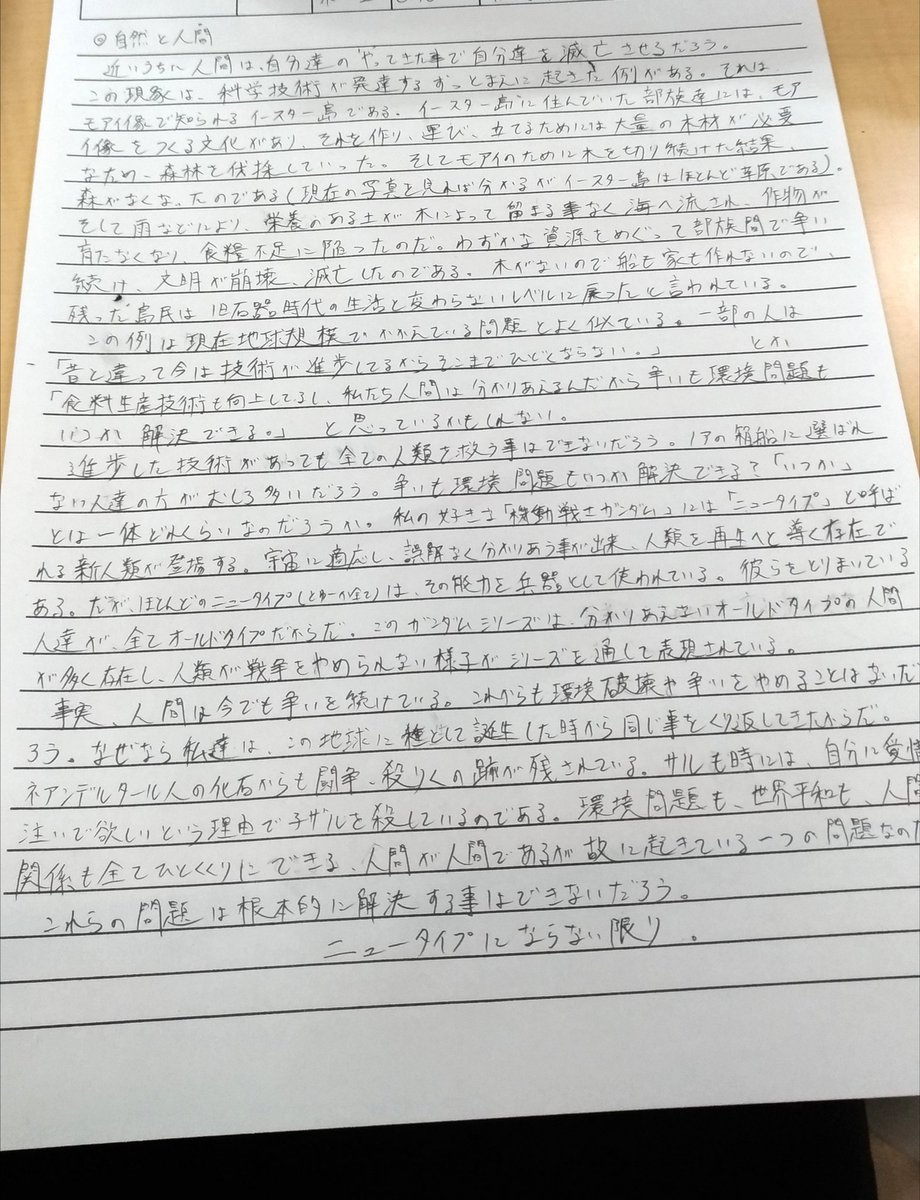 ◎自然と人間
近いうちに人間は、自分達のやってきた事で自分達を滅亡させるだろう。
この現象は、科学技術が発達するずっとまえに起きた例がある。それは
モアイ像で知られるイースター島である。イースター島に住んでいた部族達には、モア
イ像をつくる文化があり、それを作り、運び、立てるためには大量の木材が必要
なため、森林を伐採していった。そしてモアイのために木を切り続けた結果、
森がなくなったのである(現在の写真を見れば分かるがイースター島はほとんど草原である)。
そして雨などにより、栄養のある土が木によって留まる事なく海へ流され、作物が
育たなくなり、食糧不足に陥ったのだ。わずかな資源をめぐって部族間で争い
続け、文明が崩壊、滅亡したのである。木がないので船も家も作れないので、
残った島民は旧石器時代の生活と変わらないレベルに戻ったと言われている。
この例は現在地球規模でかかえている問題とよく似ている。一部の人は
「昔と違って今は技術が進歩してるからそこまでひどくならない。」とか
「食料生産技術も向上してるし、私たち人間は分かりあえるんだから争いも環境問題も
いつか解決できる。」と思っているかもしれない。
進歩した技術があっても全ての人類を救う事はできないだろう。ノアの箱船に選ばれ
ない人達の方がむしろ多いだろう。争いも環境問題もいつか解決できる?「いつか」
とは一体どれくらいなのだろうか。私の好きな「機動戦士ガンダム」には「ニュータイプ」と呼ば
れる新人類が登場する。宇宙に適応し、誤解なく分かりあう事が出来、人類を再生へと導く存在で
ある。だが、ほとんどのニュータイプ(というか全て)は、その能力を兵器として使われている。彼らをとりまいている
人達が、全てオールドタイプだからだ。このガンダムシリーズは、分かりあえないオールドタイプの人間
が多く存在し、人類が戦争をやめられない様子がシリーズを通して表現されている。
事実、人間は今でも争いを続けている。これからも環境破壊や争いをやめることはないだ
ろう。なぜなら私達は、この地球に種として誕生した時から同じ事をくり返してきたからだ。
ネアンデルタール人の化石からも闘争、殺りくの跡が残されている。サルも時には、自分に愛情
注いで欲しいという理由で子ザルを殺しているのである。環境問題も、世界平和も、人間
関係も全てひとくくりにできる、人間が人間であるが故に起きている一つの問題なのだ
これらの問題は根本的に解決する事はできないだろう。
ニュータイプにならない限り。